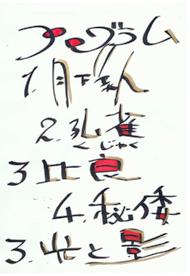 プログラム
1.月下美人
2.孔雀
くじゃく
3.比良
4.秘倭
3.光と影